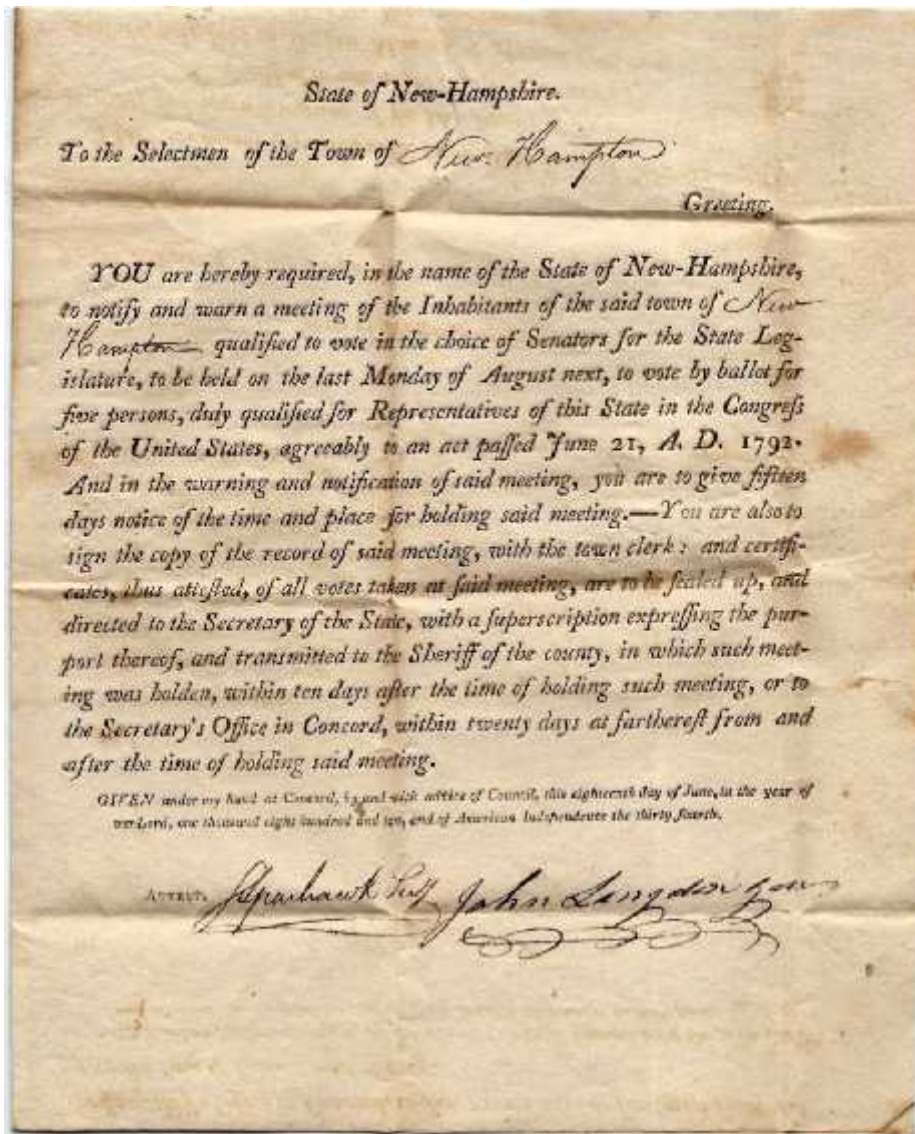 State of New-Hampshire.
To the Selectmen of the Town of New Hampton
Greeting.
YOU are hereby required, in the name of the State of New-Hampshire,
to notify and warn a meeting of the Inhabitants of the said town of New
Hampton qualified to vote in the choice of Senators for the State Leg-
islature, to be held on the last Monday of August next, to vote by ballot for
five persons, duly qualified for Representatives of this State in the Congreſs
of the United States, agreeably to an act paſſed June 21, A. D. 1792.
And in the warning and notification of said meeting, you are to give fifteen
days notice of the time and place for holding said meeting.—You are also to
sign the copy of the record of said meeting, with the town clerk: and certifi-
cates, thus atteſted, of all votes taken at ſaid meeting, are to be ſealed up, and
directed to the Secretary of the State, with a ſuperscription expreſſing the pur-
port thereof, and transmitted to the Sheriff of the county, in which such meet-
ing was holden, within ten days after the time of holding such meeting, or to
the Secretary's Office in Concord, within twenty days at fartherеſt from and
after the time of holding said meeting.
GIVEN under my hand at Concord, by and with advice of Council, this eighteenth day of June, in the year of
our Lord, one thousand eight hundred and ten, and of American Independence the thirty fourth.
ATTEST, Sparhawk John Langdon